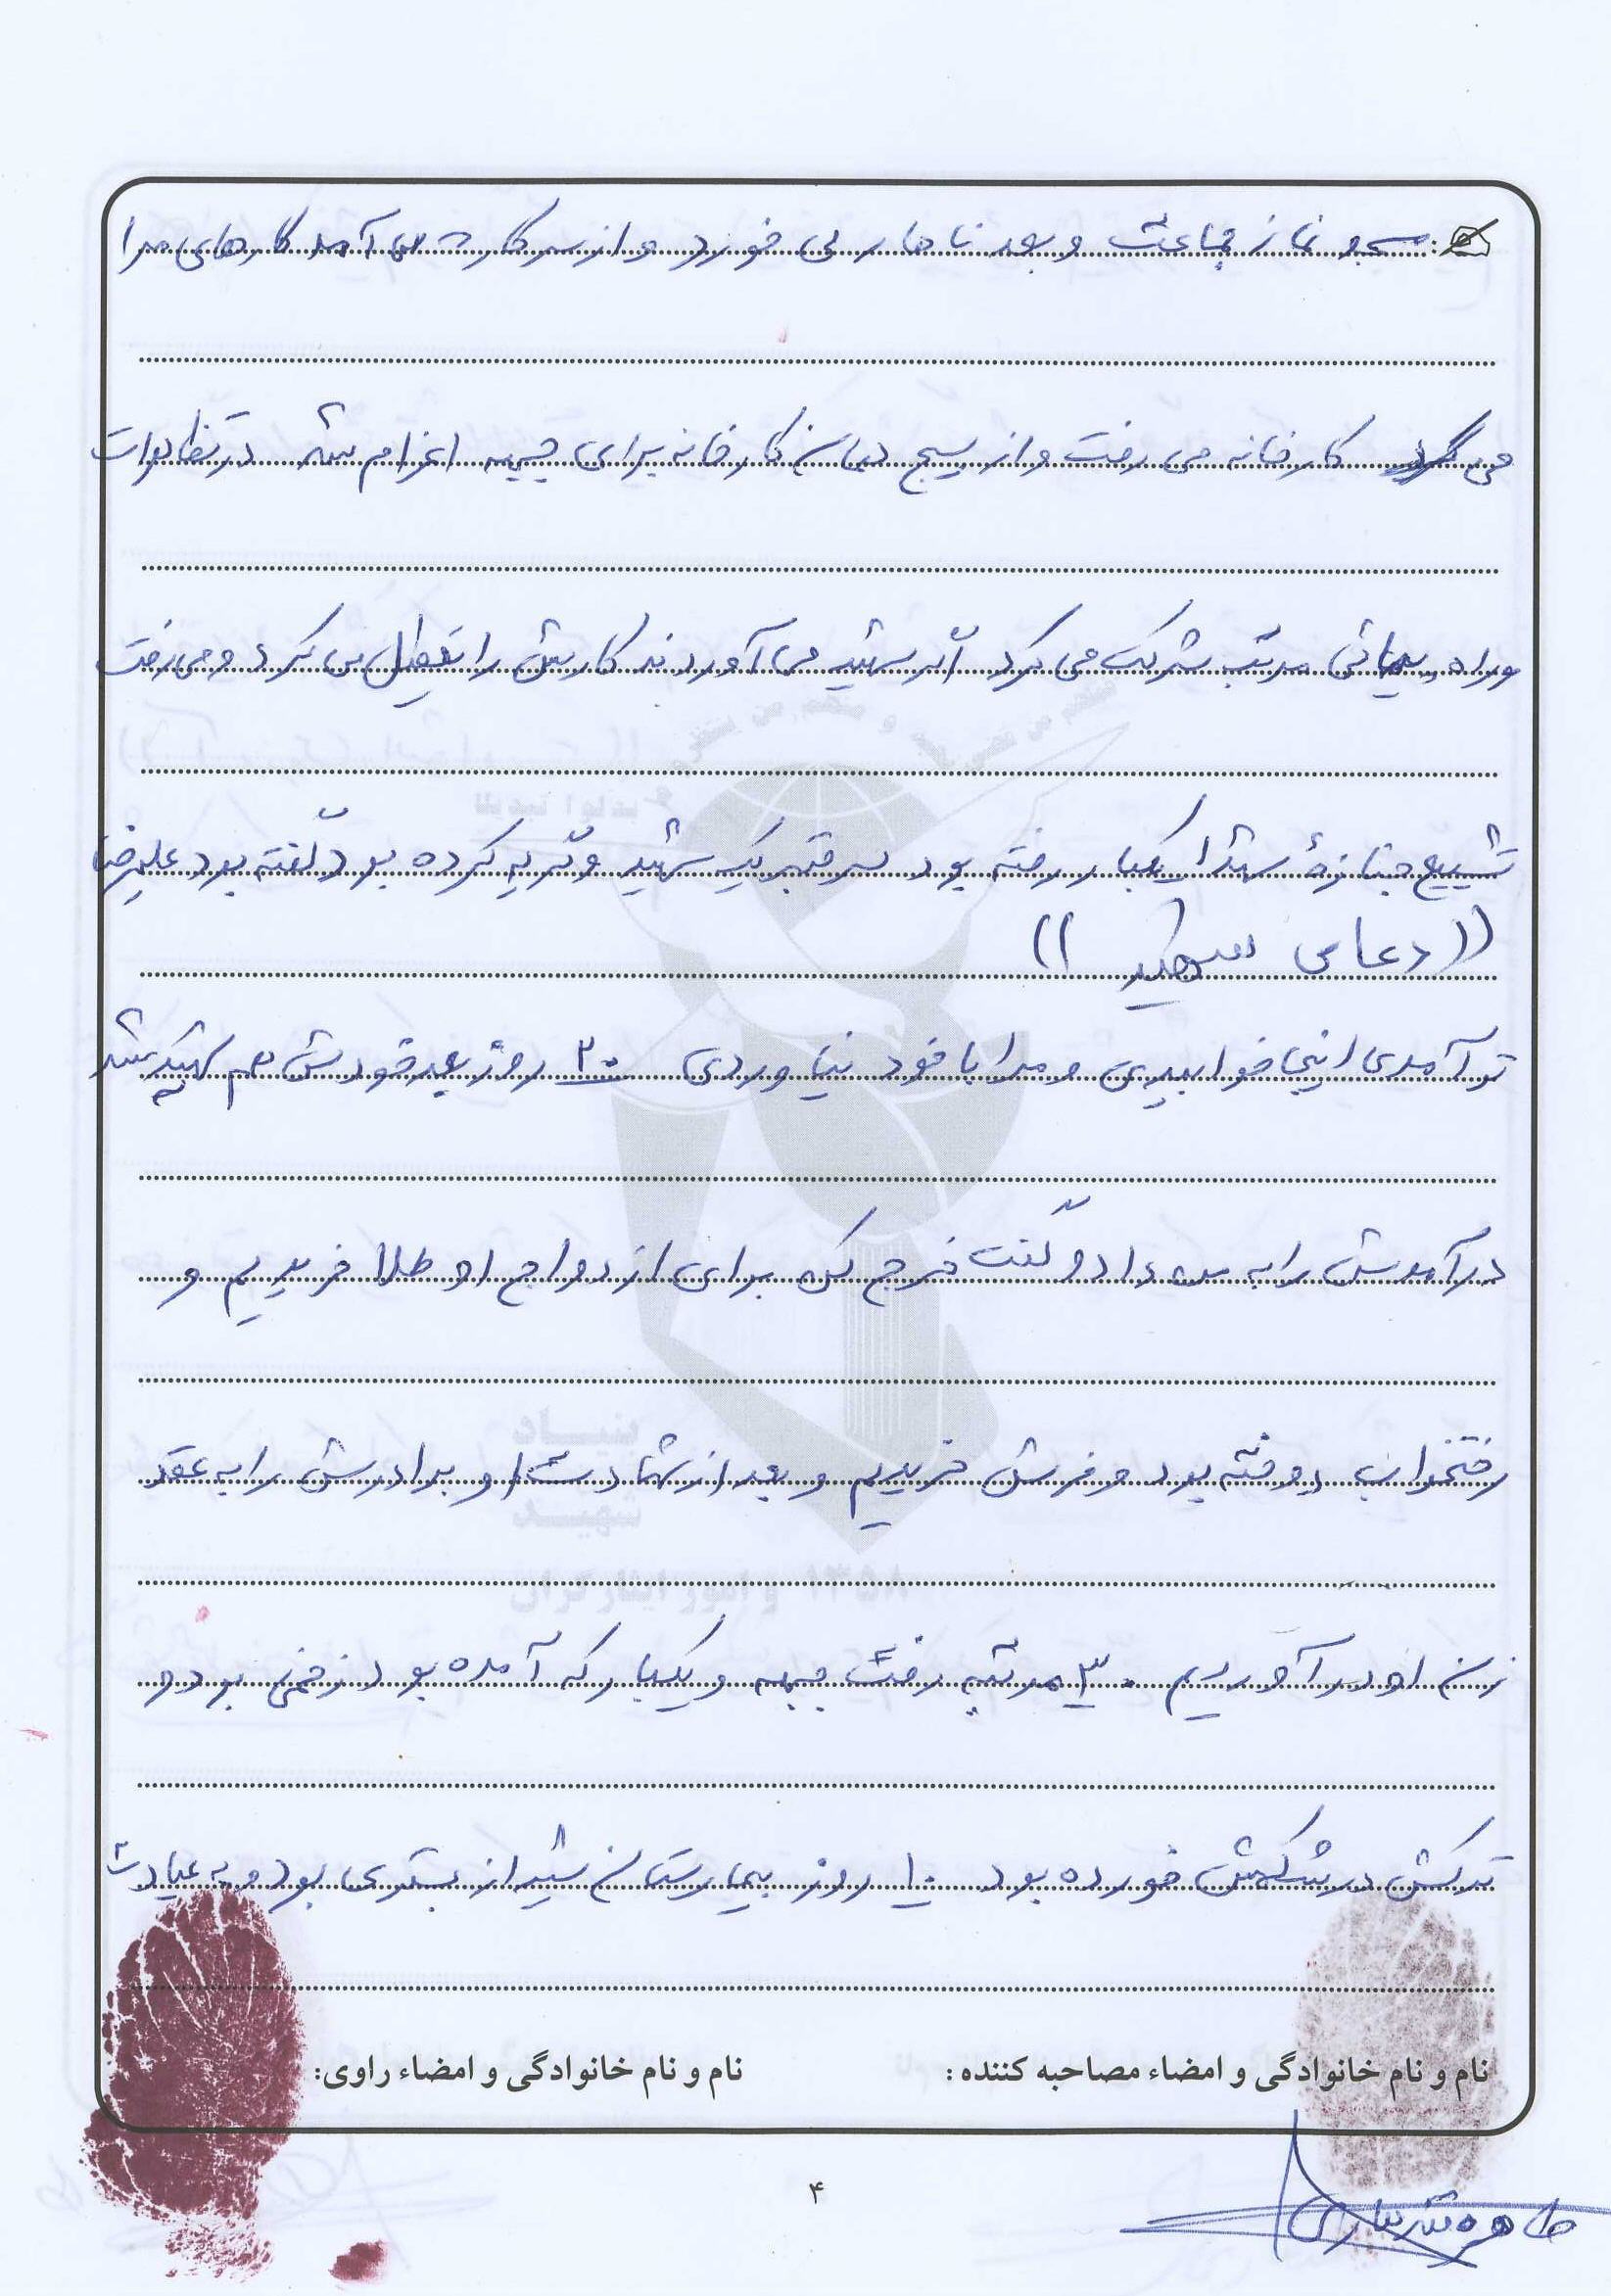 مسجد نماز جماعت و بعد ناهار می خورد و از سر کار که می آمد کارهای مرا
می کرد کارخانه می رفت و از بسیج همان کارخانه برای جبهه اعزام شد در تظاهرات
و راه پیمائی مرتب شرکت می کرد اگر شهید می آوردند کارش را تعطیل می کرد و می رفت
تشییع جنازهٔ شهدا یکبار رفته بود سر قبر یک شهید و گریه کرده بود گفته بود علیرضا
((دعای شهید))
تو آمدی اینجا خوابیدی و مرا با خود نیاوردی ۲۰ روز بعد خودش هم شهید شد
درآمدش را به من داد و گفت خرج کن برای ازدواج او طلا خریدیم و
رختخواب دوخته بود و فرش خریدیم و بعد از شهادت او برادرش را به عقد
زن او در آوردیم . ۳ مرتبه رفت جبهه و یکبار که آمده بود زخمی بود و
ترکش در شکمش خورده بود ۱۰ روز بیمارستان شیراز بستری بود و به عیادت
نام و نام خانوادگی و امضاء مصاحبه کننده : نام و نام خانوادگی و امضاء راوی:
۴
طاهره
بنیاد
شهید
و امور ایثارگران ۱۳۵۸